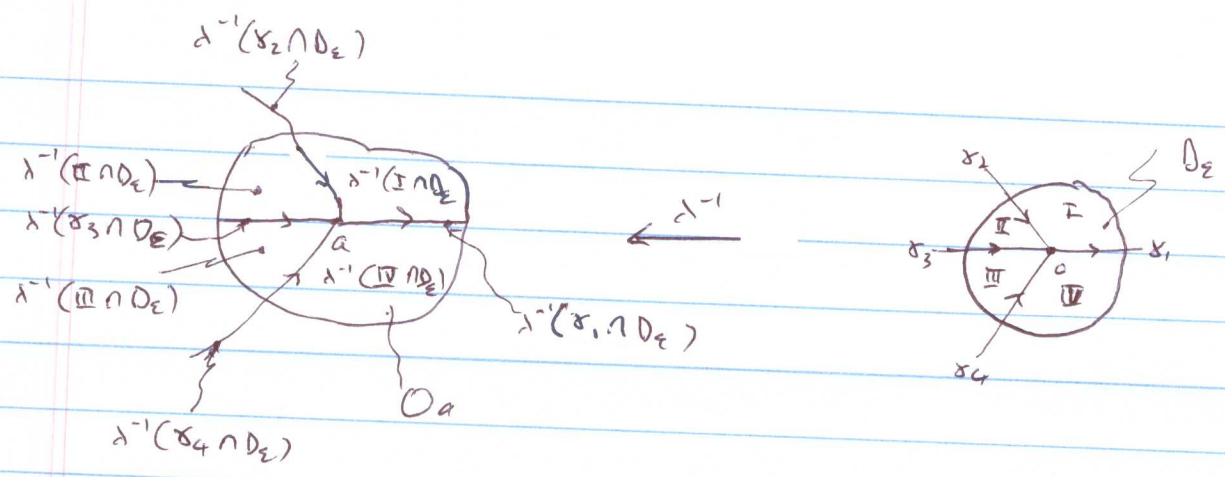 λ⁻¹(γ₂∩D_ε)
λ⁻¹(II∩D_ε)
λ⁻¹(I∩D_ε
λ⁻¹(γ₃∩D_ε)
a
λ⁻¹(III∩D_ε)
λ⁻¹(IV∩D_ε)
λ⁻¹(γ₁∩D_ε)
O_a
λ⁻¹(γ₄∩D_ε)
λ⁻¹
γ₂
D_ε
I
II
γ₃
γ₁
III
o
IV
γ₄